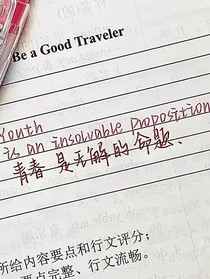 Be a Good Traveler
Youth
is an insolvable proposition
青春 是无解的命题、
所给内容要点和行文评分；
要点完整、行文流畅。